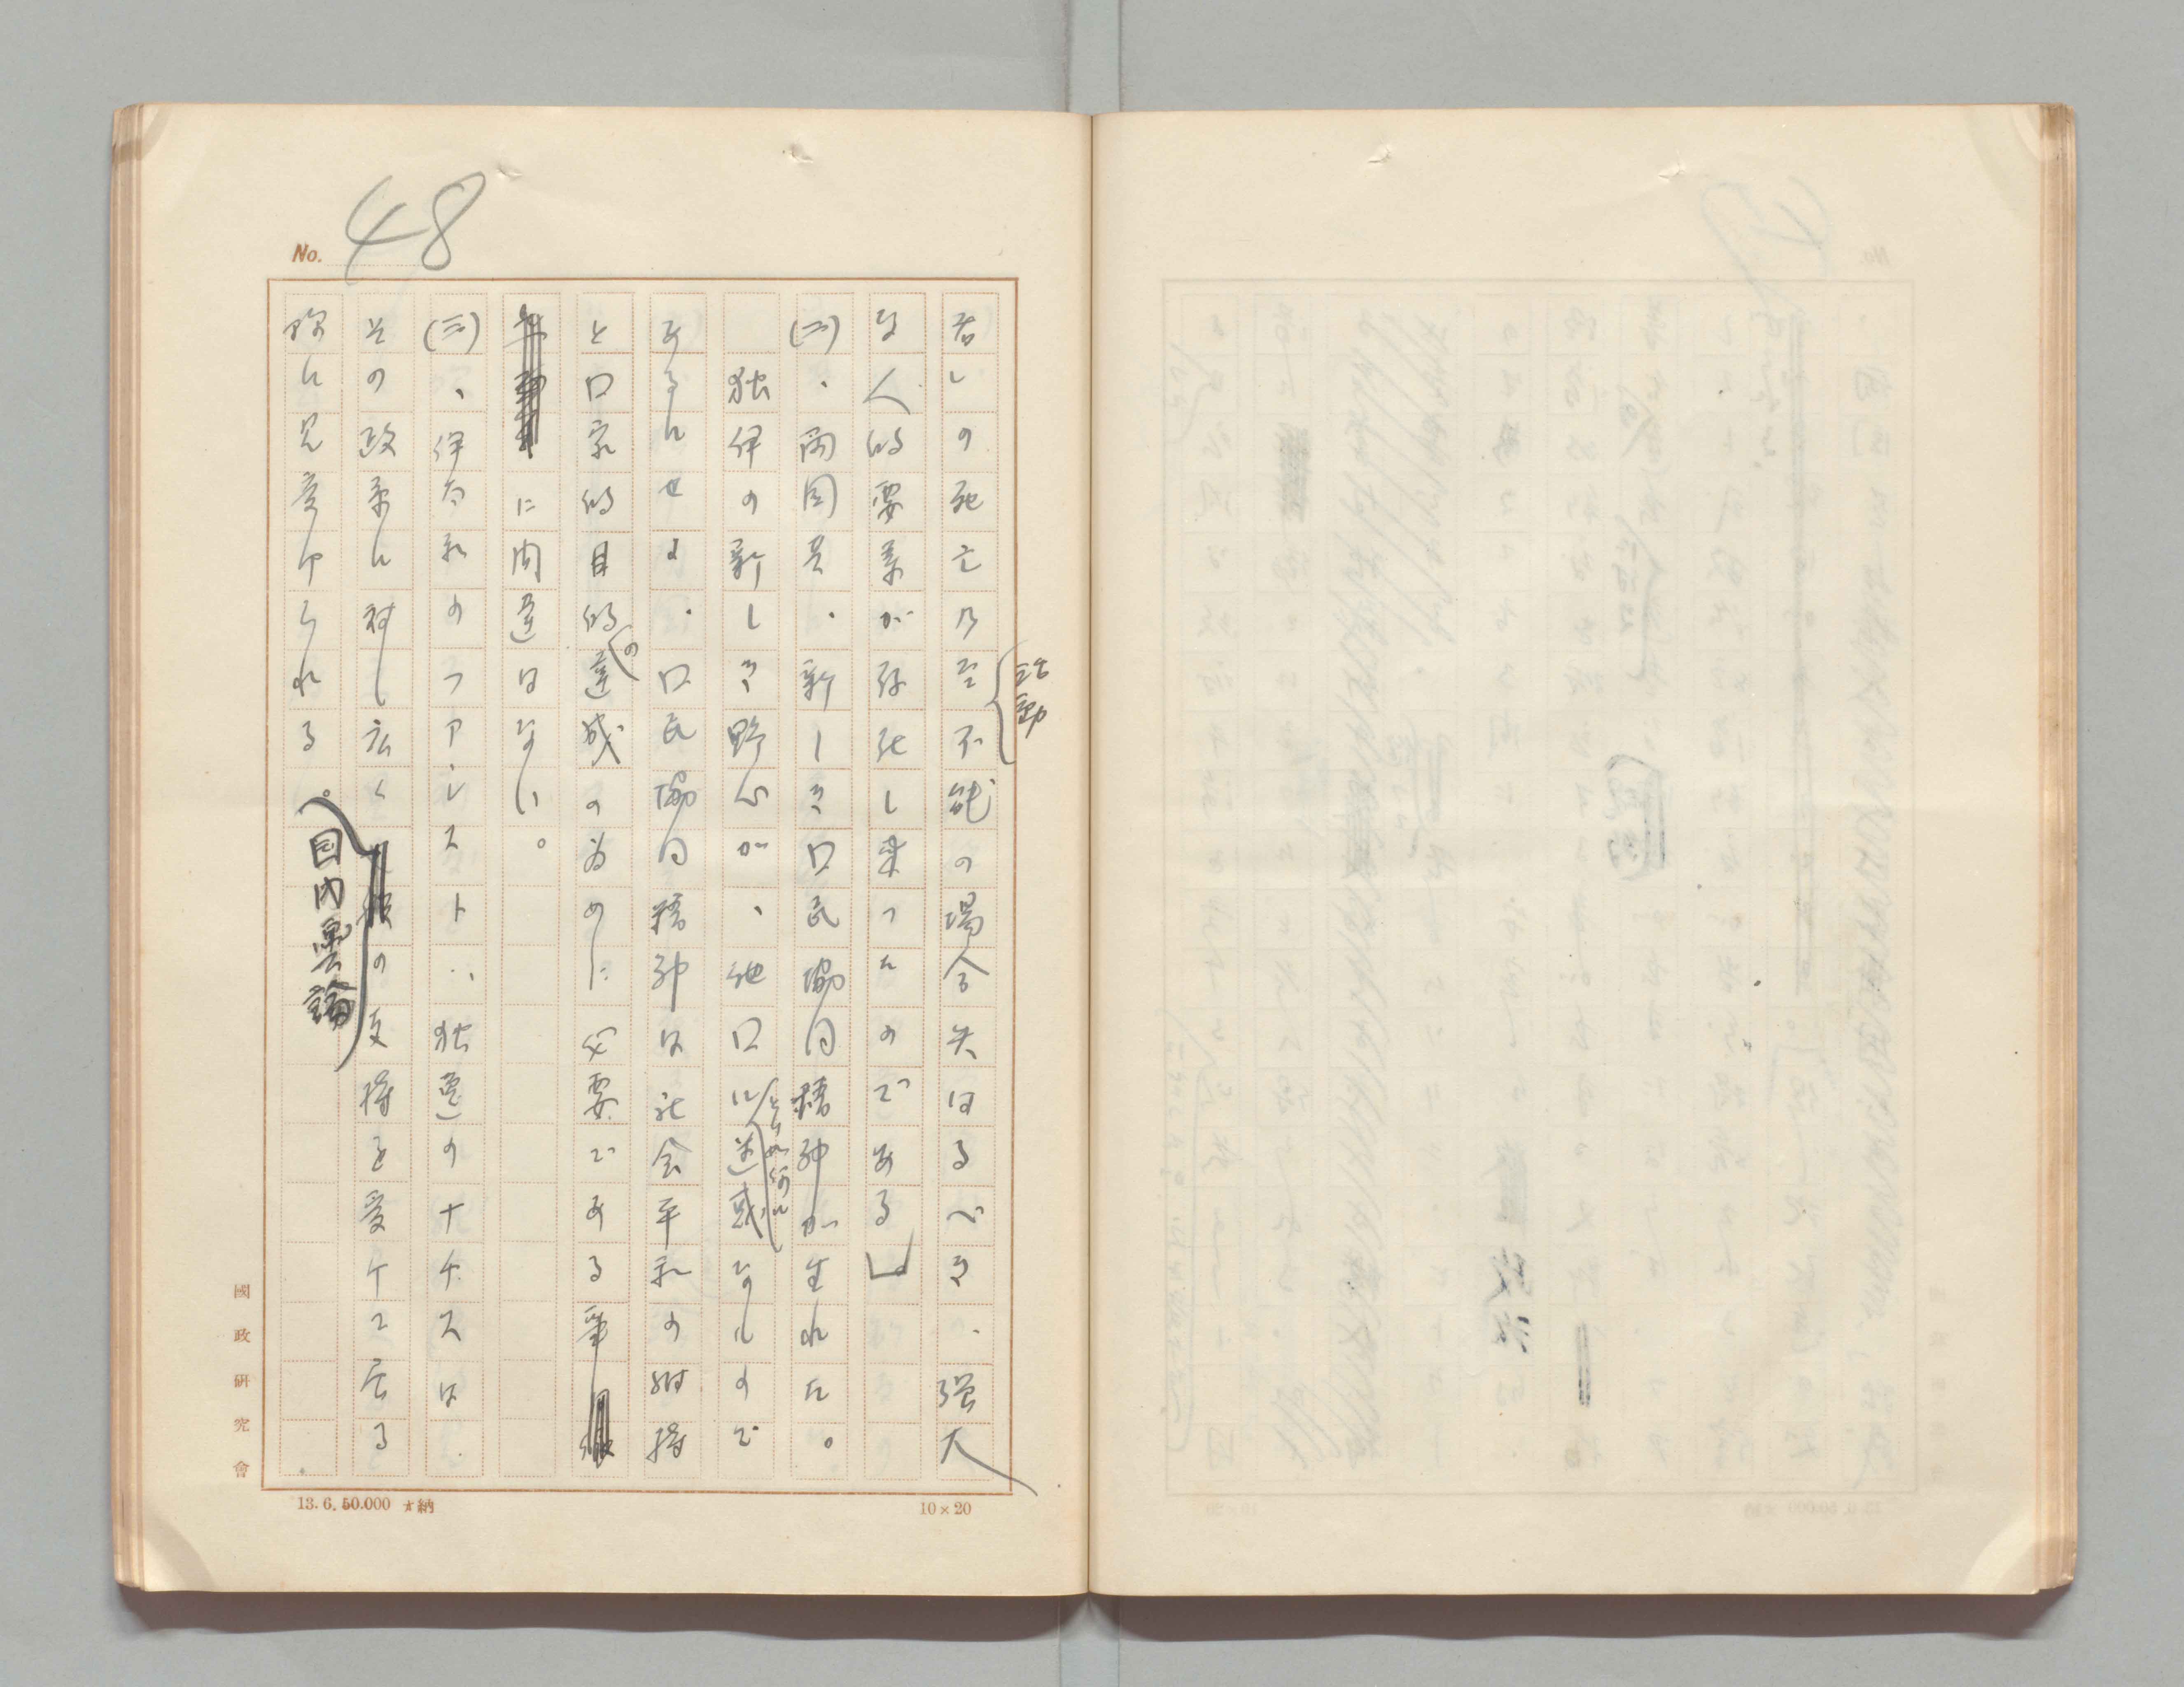 No. 48
若しの死亡乃至活動不能の場合失はるべき、强大
な人的要素が存在し来つたのである」
(二)、両国共、新しき口民協同精神が生れた。
独伊の新しき野心が、他口にとり如何に迷惑なもので
あるにせよ、口民協同精神は社会平和の維持
と口家的目的の達成の為めに必要である事
に間違はない。
(三)、伊太利のファシスト、独逸のナチスは、
その政策に対し広く国内輿論の支持を受けて居る
様に見受けられる。
國政研究會
13.6.50.000 才納
10×20